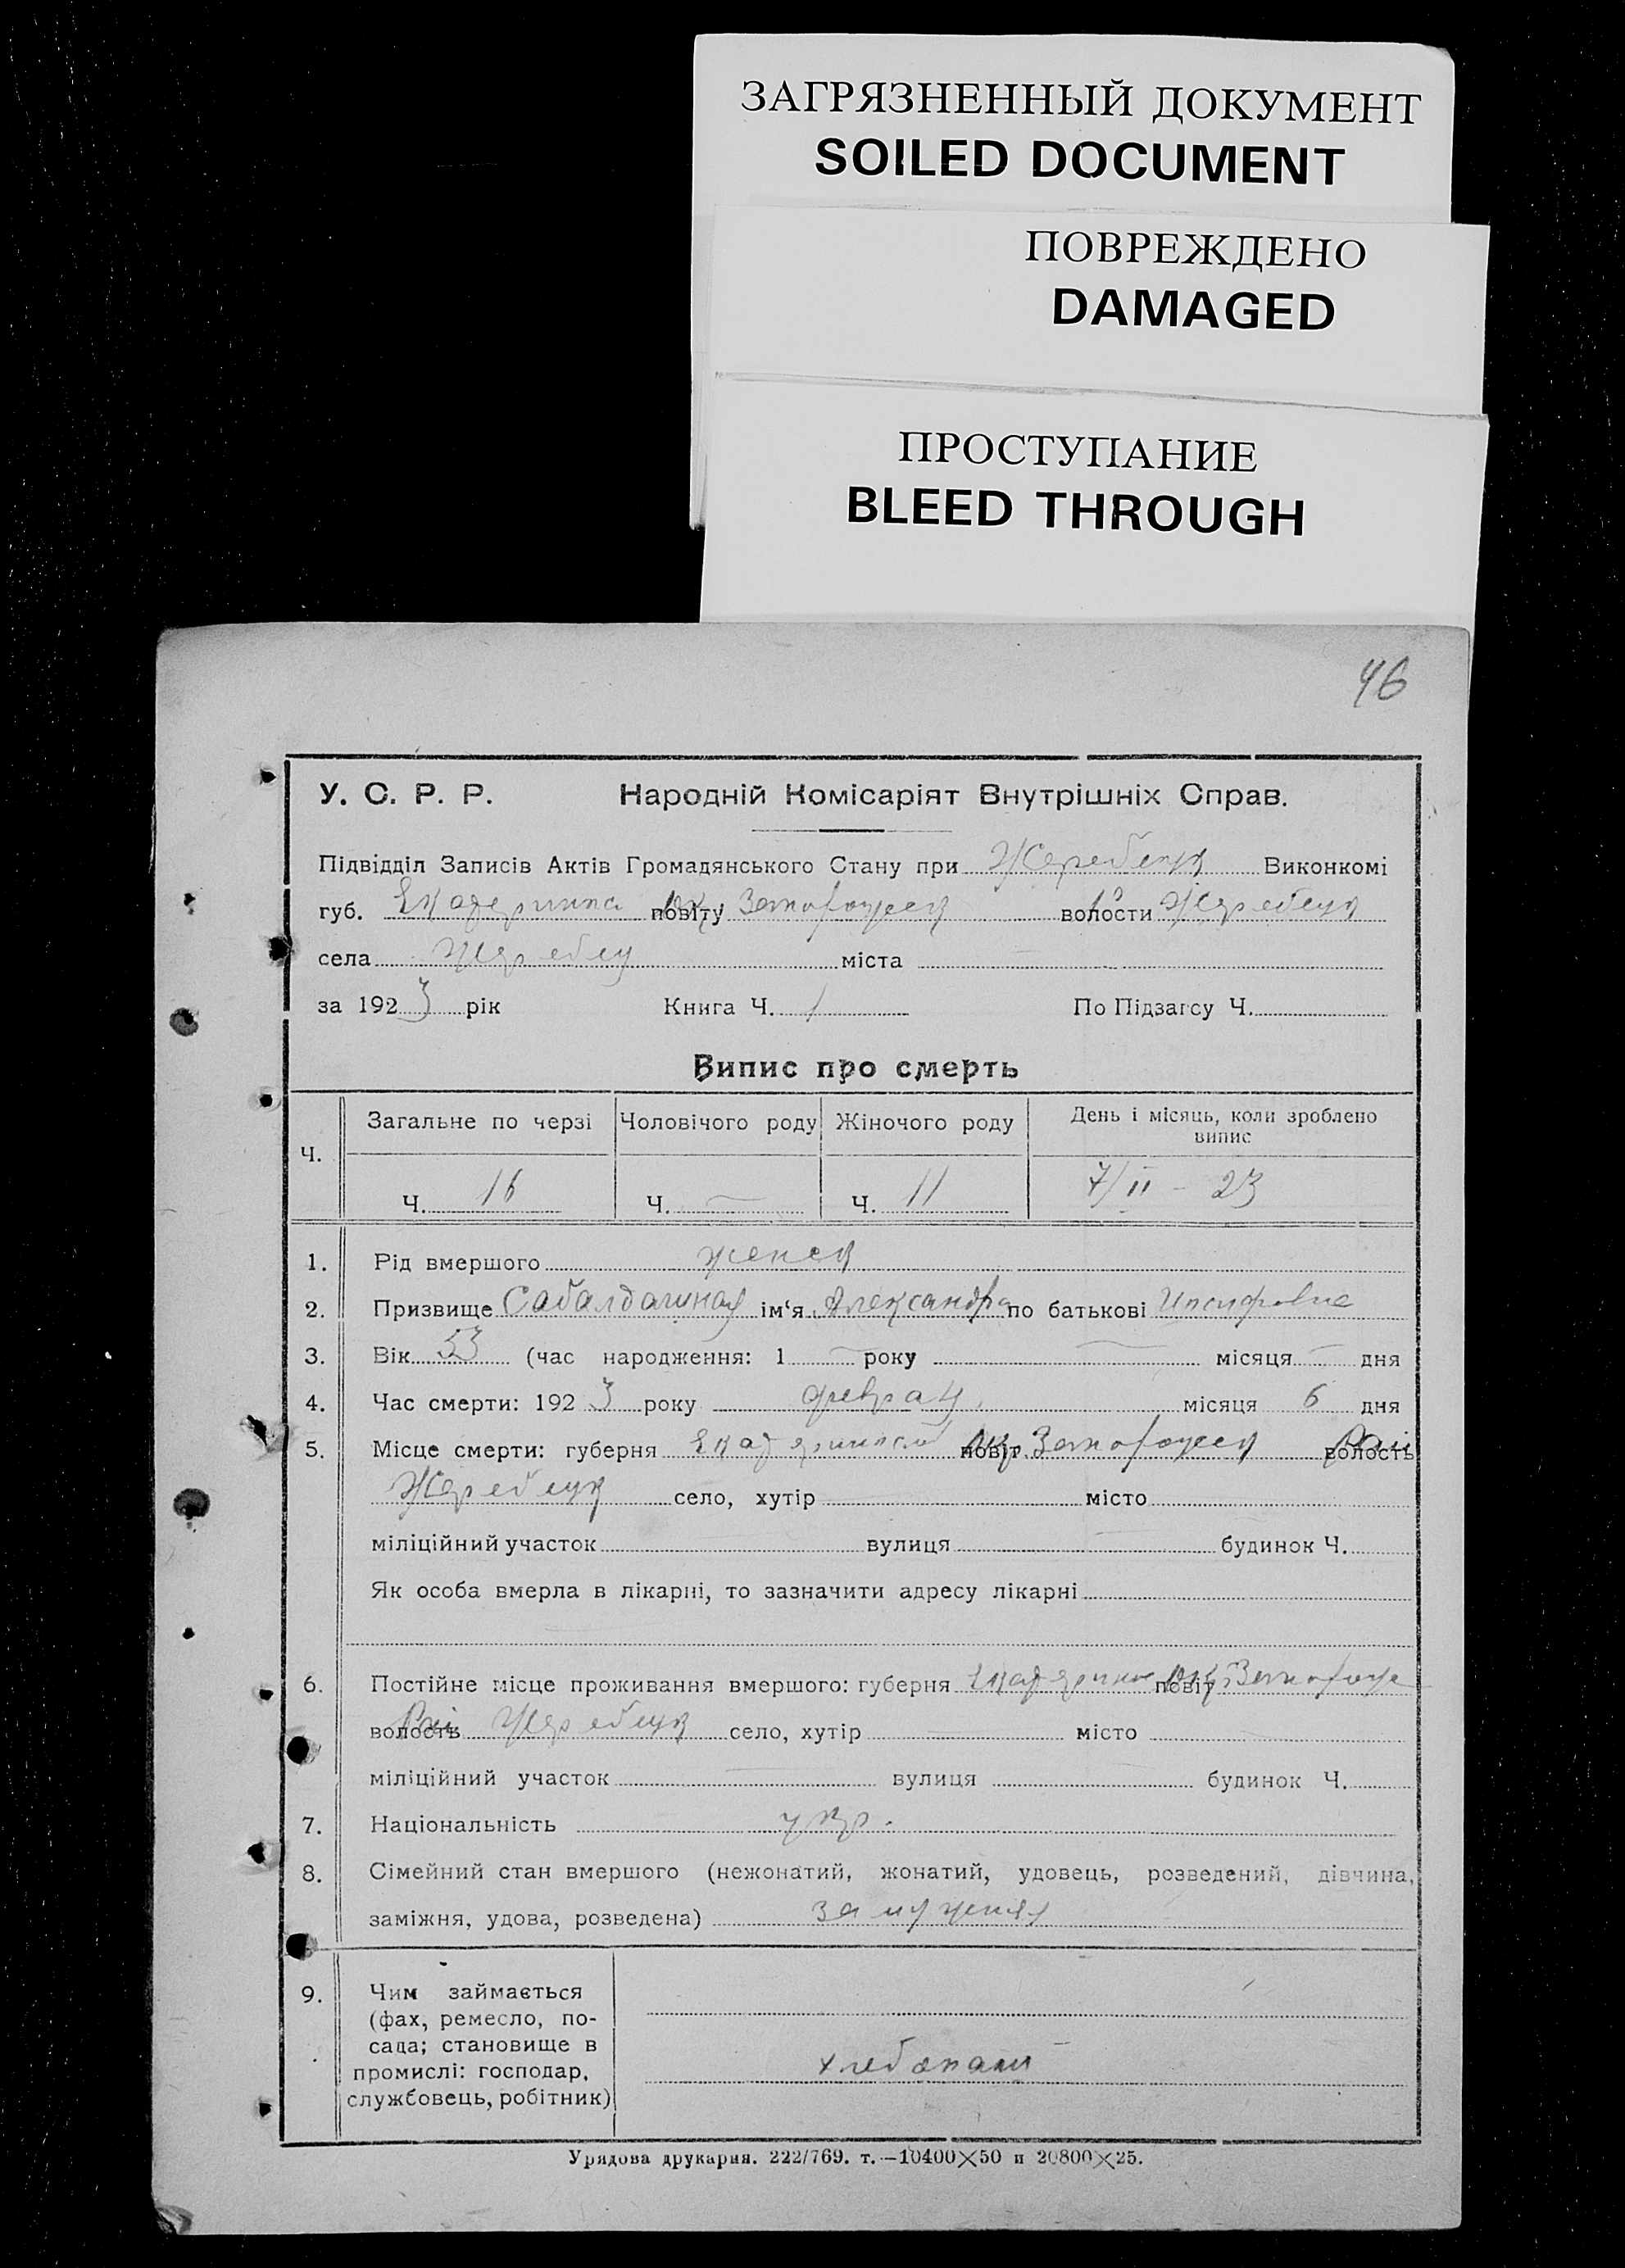 ЗАГРЯЗНЕННЫЙ ДОКУМЕНТ
SOILED DOCUMENT
ПОВРЕЖДЕНО
DAMAGED
ПРОСТУПАНИЕ
BLEED THROUGH
46
У. С. Р. Р. Народній Комісаріят Внутрішніх Справ.
Підвідділ Записів Актів Громадянського Стану при Жеребецк Виконкомі
губ. повіту волости Жеребецк
села Жеребец міста
за 1923 рік Книга Ч. 1 По Підзагсу Ч.
Випис про смерть
Ч. Загальне по черзі Чоловічого роду Жіночого роду День і місяць, коли зроблено випис
Ч. 16 Ч. — Ч. 11 7/II - 23
1. Рід вмершого женск
2. Призвище ім'я Александра по батькові
3. Вік 53 (час народження: 1 — року — місяця — дня
4. Час смерти: 1923 року місяця 6 дня
5. Місце смерти: губерня повіт волость
Жеребецк село, хутір місто
міліційний участок вулиця будинок Ч.
Як особа вмерла в лікарні, то зазначити адресу лікарні
6. Постійне місце проживання вмершого: губерня повіт
волость Жеребецк село, хутір місто
міліційний участок вулиця будинок Ч.
7. Національність укр.
8. Сімейний стан вмершого (нежонатий, жонатий, удовець, розведений, дівчина,
заміжня, удова, розведена) замужняя
9. Чим займається
(фах, ремесло, по-
сада; становище в
промислі: господар,
службовець, робітник)
Урядова друкарня. 222/769. т.—10400×50 и 20800×25.